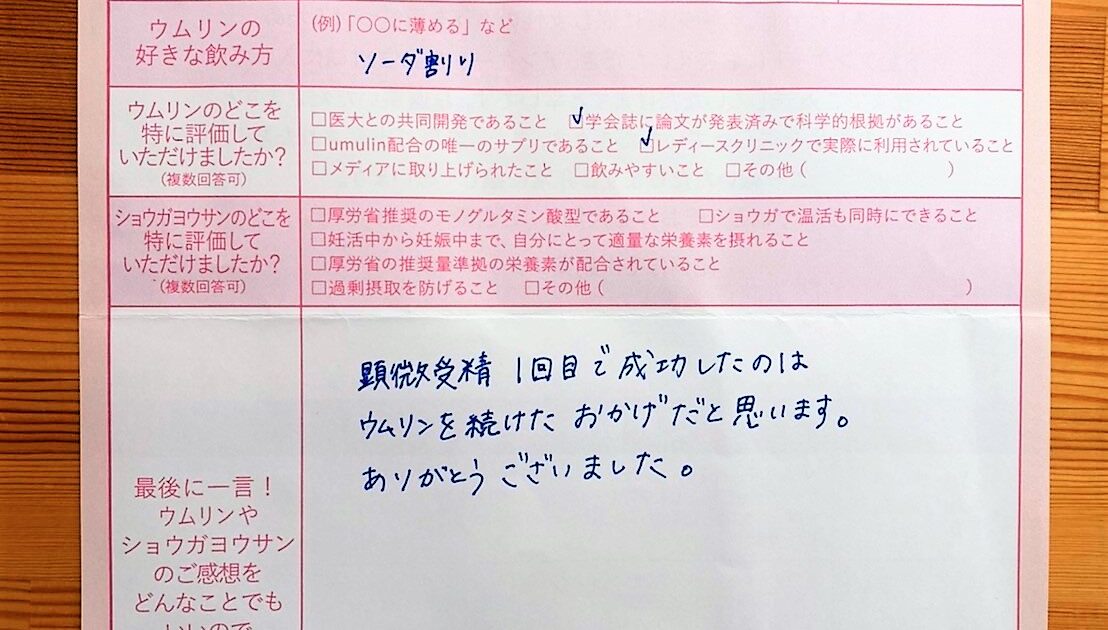 ウムリンの
好きな飲み方
(例)「〇〇に薄める」など
ソーダ割り
ウムリンのどこを
特に評価して
いただけましたか?
(複数回答可)
□医大との共同開発であること ☑学会誌に論文が発表済みで科学的根拠があること
□umulin配合の唯一のサプリであること ☑レディースクリニックで実際に利用されていること
□メディアに取り上げられたこと □飲みやすいこと □その他( )
ショウガヨウサンのどこを
特に評価して
いただけましたか?
(複数回答可)
□厚労省推奨のモノグルタミン酸型であること □ショウガで温活も同時にできること
□妊活中から妊娠中まで、自分にとって適量な栄養素を摂れること
□厚労省の推奨量準拠の栄養素が配合されていること
□過剰摂取を防げること □その他( )
最後に一言!
ウムリンや
ショウガヨウサン
のご感想を
どんなことでも
いいので
顕微受精 1回目で成功したのは
ウムリンを続けた おかげだと思います。
ありがとうございました。